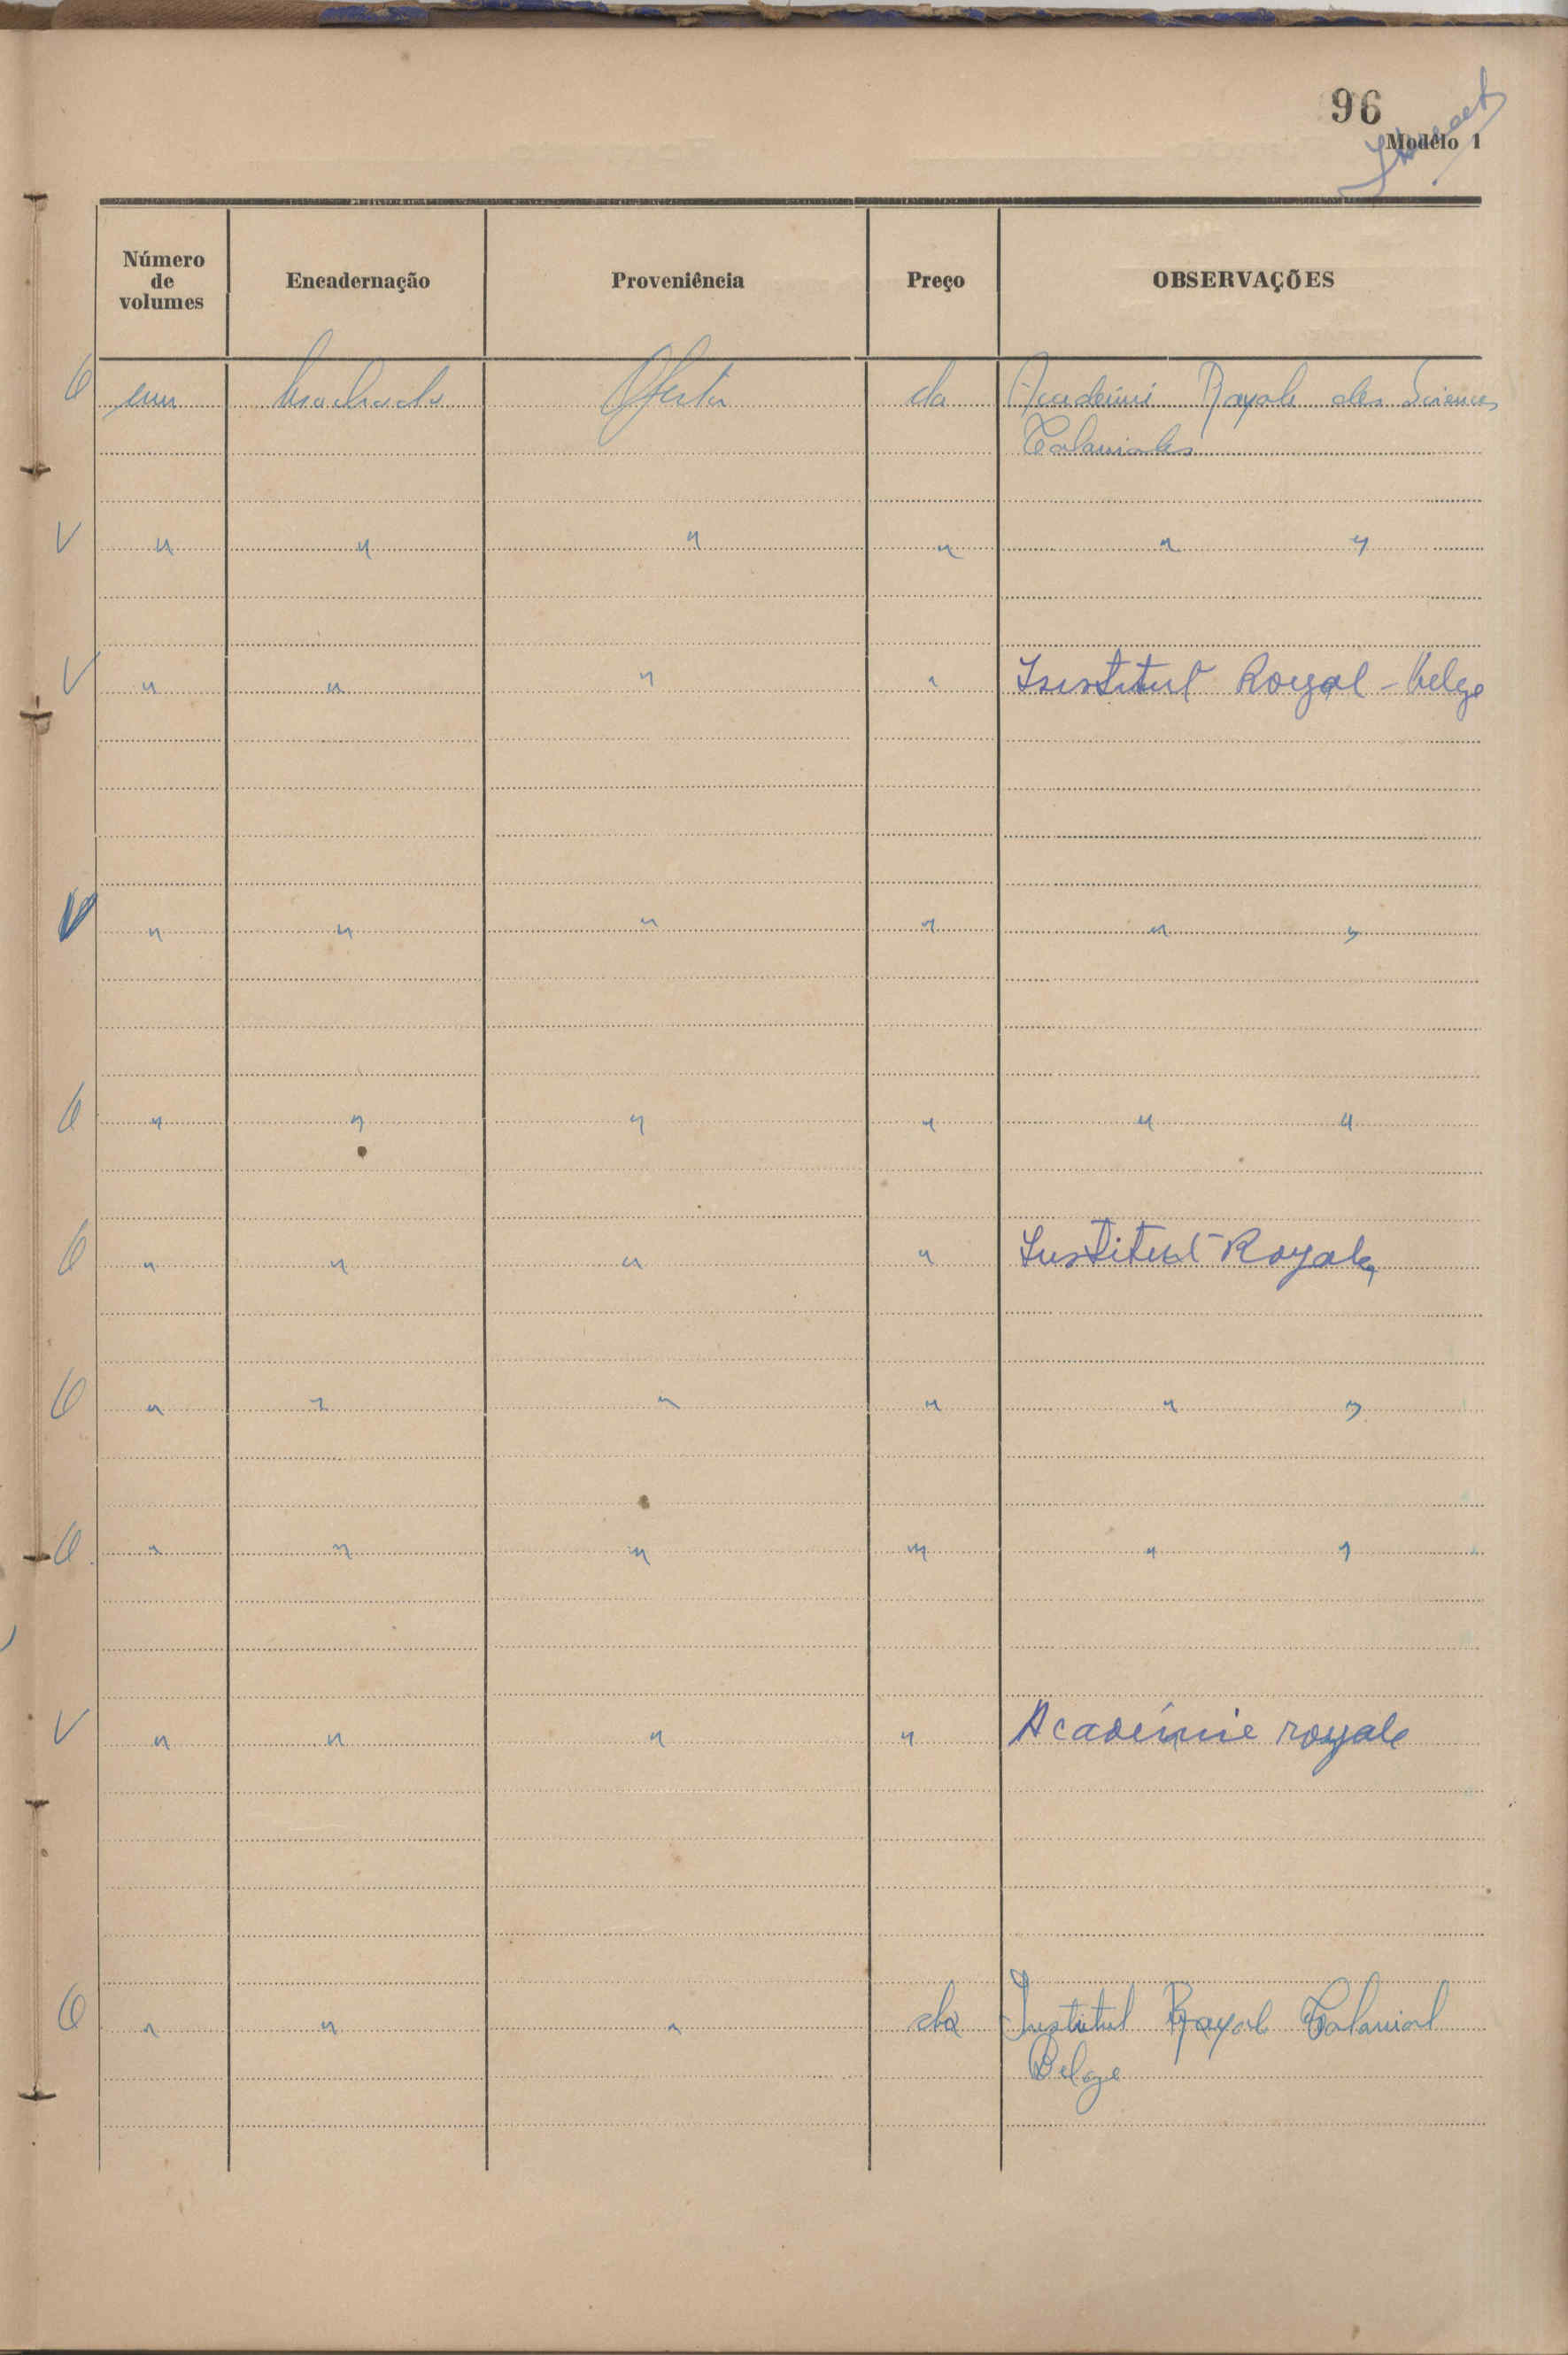 96
Modêlo 1
Número de volumes Encadernação Proveniência Preço OBSERVAÇÕES
um brochado Oferta da Académi Royale des Sciences
Coloniales
" " " " " "
" " " " Institut Royal-belge
" " " " " "
" " " " " "
" " " " Institut Royale
" " " " " "
" " " " " "
" " " " Académie royale
" " " da Institut Royal Colonial
Belge